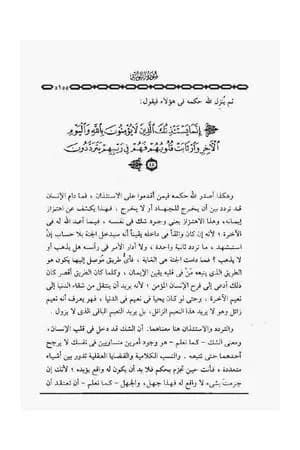 سورة التوبة
٥١٥٥
ثم يُنزِل الله حكمه في هؤلاء فيقول:
إِنَّمَا يَسْتَـْٔذِنُكَ ٱلَّذِينَ لَا يُؤْمِنُونَ بِٱللَّهِ وَٱلْيَوْمِ
ٱلْآخِرِ وَٱرْتَابَتْ قُلُوبُهُمْ فَهُمْ فِي رَيْبِهِمْ يَتَرَدَّدُونَ
٤٥
وهكذا أصدر الله حكمه فيمن أقدموا على الاستئذان ، فما دام الإنسان
قد تردد بين أن يخرج للجهاد أو لا يخرج ، فهذا يكشف عن اهتزاز
إيمانه، وهذا الاهتزاز يعني وجود شك في نفسه ، فيما أعد الله له في
الآخرة ؛ لأنه إن كان واثقاً في داخله يقيناً أنه سيدخل الجنة بلا حساب إن
استشهد ، ما تردد ثانية واحدة ، ولا أدار الأمر في رأسه هل يذهب أو
لا يذهب ؟ فما دامت الجنة هي الغاية ، فأيُّ طريق مُوصل إليها يكون هو
الطريق الذي يتبعه مَنْ في قلبه يقين الإيمان ، وكلما كان الطريق أقصر كان
ذلك أدعى إلى فرح الإنسان المؤمن ؛ لأنه يريد أن ينتقل من شقاء الدنيا إلى
نعيم الآخرة ، وحتى لو كان يحيا في نعيم في الدنيا ، فهو يعرف أنه نعيم
زائل وهو لا يريد هذا النعيم الزائل، بل يريد النعيم الباقي الذي لا يزول .
والتردد والاستئذان هنا معناهما: أن الشك قد دخل في قلب الإنسان،
ومعنى الشك - كما نعلم - هو وجود أمرين متساويين في نفسك لا يرجح
أحدهما حتى تتبعه . والنسب الكلامية والقضايا العقلية تدور بين أشياء
متعددة ، فأنت حين تجزم بحكم فلا بد أن يكون له واقع يؤيده ؛ لأنك إن
جزمتَ بشيء لا واقع له فهذا جهل، والجهل - كما نعلم - أن تعتقد أن